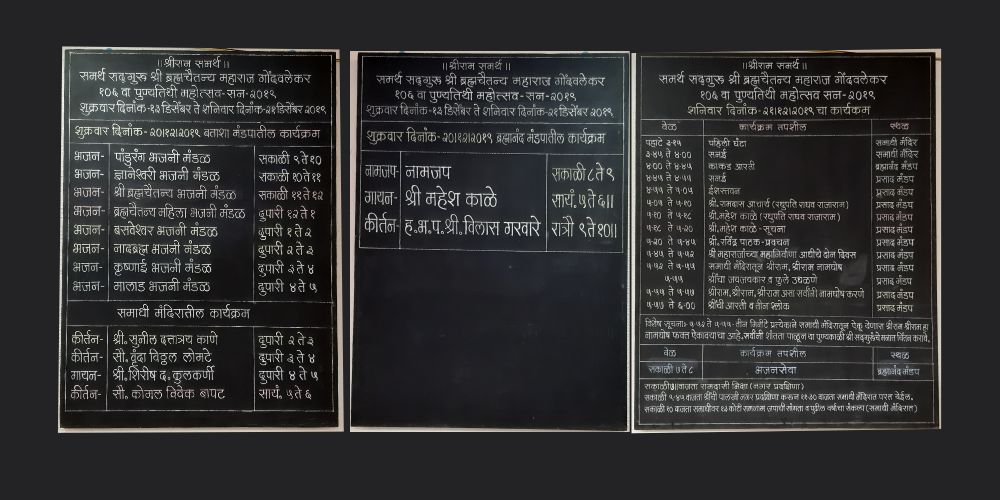 ॥श्रीराम समर्थ॥
समर्थ सद्‌गुरू श्री ब्रह्मचैतन्य महाराज गोंदवलेकर
१०६ वा पुण्यतिथी महोत्सव-सन-२०१९
शुक्रवार दिनांक-१३ डिसेंबर ते शनिवार दिनांक-२१ डिसेंबर २०१९
शुक्रवार दिनांक-२०।१२।२०१९ बताशा मंडपातील कार्यक्रम
भजन- पांडुरंग भजनी मंडळ सकाळी ९ ते १०
भजन- ज्ञानेश्वरी भजनी मंडळ सकाळी १० ते ११
भजन- श्री ब्रह्मचैतन्य भजनी मंडळ सकाळी ११ ते १२
भजन- ब्रह्मचैतन्य महिला भजनी मंडळ दुपारी १२ ते १
भजन- बसवेश्वर भजनी मंडळ दुपारी १ ते २
भजन- नादब्रह्म भजनी मंडळ दुपारी २ ते ३
भजन- कृष्णाई भजनी मंडळ दुपारी ३ ते ४
भजन- मालाड भजनी मंडळ दुपारी ४ ते ५
समाधी मंदिरातील कार्यक्रम
कीर्तन- श्री. सुनील दत्तात्रय काणे दुपारी २ ते ३
कीर्तन- सौ. वृंदा विठ्ठल लोमटे दुपारी ३ ते ४
गायन- श्री. शिरीष द. कुलकर्णी दुपारी ४ ते ५
कीर्तन- सौ. कोमल विवेक बापट सायं. ५ ते ६
॥श्रीराम समर्थ॥
समर्थ सद्‌गुरू श्री ब्रह्मचैतन्य महाराज गोंदवलेकर
१०६ वा पुण्यतिथी महोत्सव-सन-२०१९
शुक्रवार दिनांक-१३ डिसेंबर ते शनिवार दिनांक-२१ डिसेंबर २०१९
शुक्रवार दिनांक-२०।१२।२०१९ ब्रह्मानंद मंडपातील कार्यक्रम
नामजप- नामजप सकाळी ८ ते ९
गायन- श्री महेश काळे सायं. ५ ते ६॥
कीर्तन- ह.भ.प. श्री. विलास गरवारे रात्री ९ ते १०॥
॥श्रीराम समर्थ॥
समर्थ सद्‌गुरू श्री ब्रह्मचैतन्य महाराज गोंदवलेकर
१०६ वा पुण्यतिथी महोत्सव सन-२०१९
शनिवार दिनांक-२१।१२।२०१९ चा कार्यकम
वेळ कार्यक्रम तपशील स्थळ
पहाटे ३-१५ पहिली घंटा समाधी मंदिर
३-४५ ते ४-०० सनई समाधी मंदिर
४-०० ते ४-४५ काकड आरती ब्रह्मानंद मंडप
४-४५ ते ४-५५ सनई प्रसाद मंडप
४-५५ ते ५-०५ ईशस्तवन प्रसाद मंडप
५-०५ ते ५-१० श्री. रामदास आचार्य (रघुपति राघव राजाराम) प्रसाद मंडप
५-१० ते ५-१८ श्री. महेश काळे (रघुपति राघव राजाराम) प्रसाद मंडप
५-१८ ते ५-२० श्री. महेश काळे - सूचना प्रसाद मंडप
५-२० ते ५-४५ श्री. रविंद्र पाठक-प्रवचन प्रसाद मंडप
५-४५ ते ५-५२ श्री महाराजांच्या महानिर्वाणा आधीचे दोन दिवस प्रसाद मंडप
५-५२ ते ५-५५ समाधी मंदिरातून श्रीराम, श्रीराम नामघोष प्रसाद मंडप
५-५५ श्रींचा जयजयकार व फुले उधळणे प्रसाद मंडप
५-५५ ते ५-५७ श्रीराम, श्रीराम, श्रीराम असा सर्वांनी नामघोष करणे प्रसाद मंडप
५-५७ ते ६-०० श्रींची आरती व तीन श्लोक प्रसाद मंडप
विशेष सूचनाः ५-५२ ते ५-५५-तीन मिनीटे प्रत्येकाने समाधी मंदिरातून ऐकू येणारा श्रीराम श्रीराम हा
नामघोष फक्त ऐकावयाचा आहे. सर्वांनी शांतता पाळून या पुण्यकाळी श्री सद्‌गुरूंचे मनात चिंतन करावे.
वेळ कार्यक्रम तपशील स्थळ
सकाळी ७ ते ८ भजनसेवा ब्रह्मानंद मंडप
सकाळी ७॥ वाजता रामदासी भिक्षा (नगर प्रदक्षिणा)
सकाळी ९-४५ वाजता श्रींची पालखी नगर प्रदक्षिणा करून ११-३० वाजता समाधी मंदिरात परत येईल.
सकाळी १० वाजता समाधीवर १३ कोटी रामनाम जपाची सांगता व पुढील वर्षाचा संकल्प (समाधी मंदिरात)